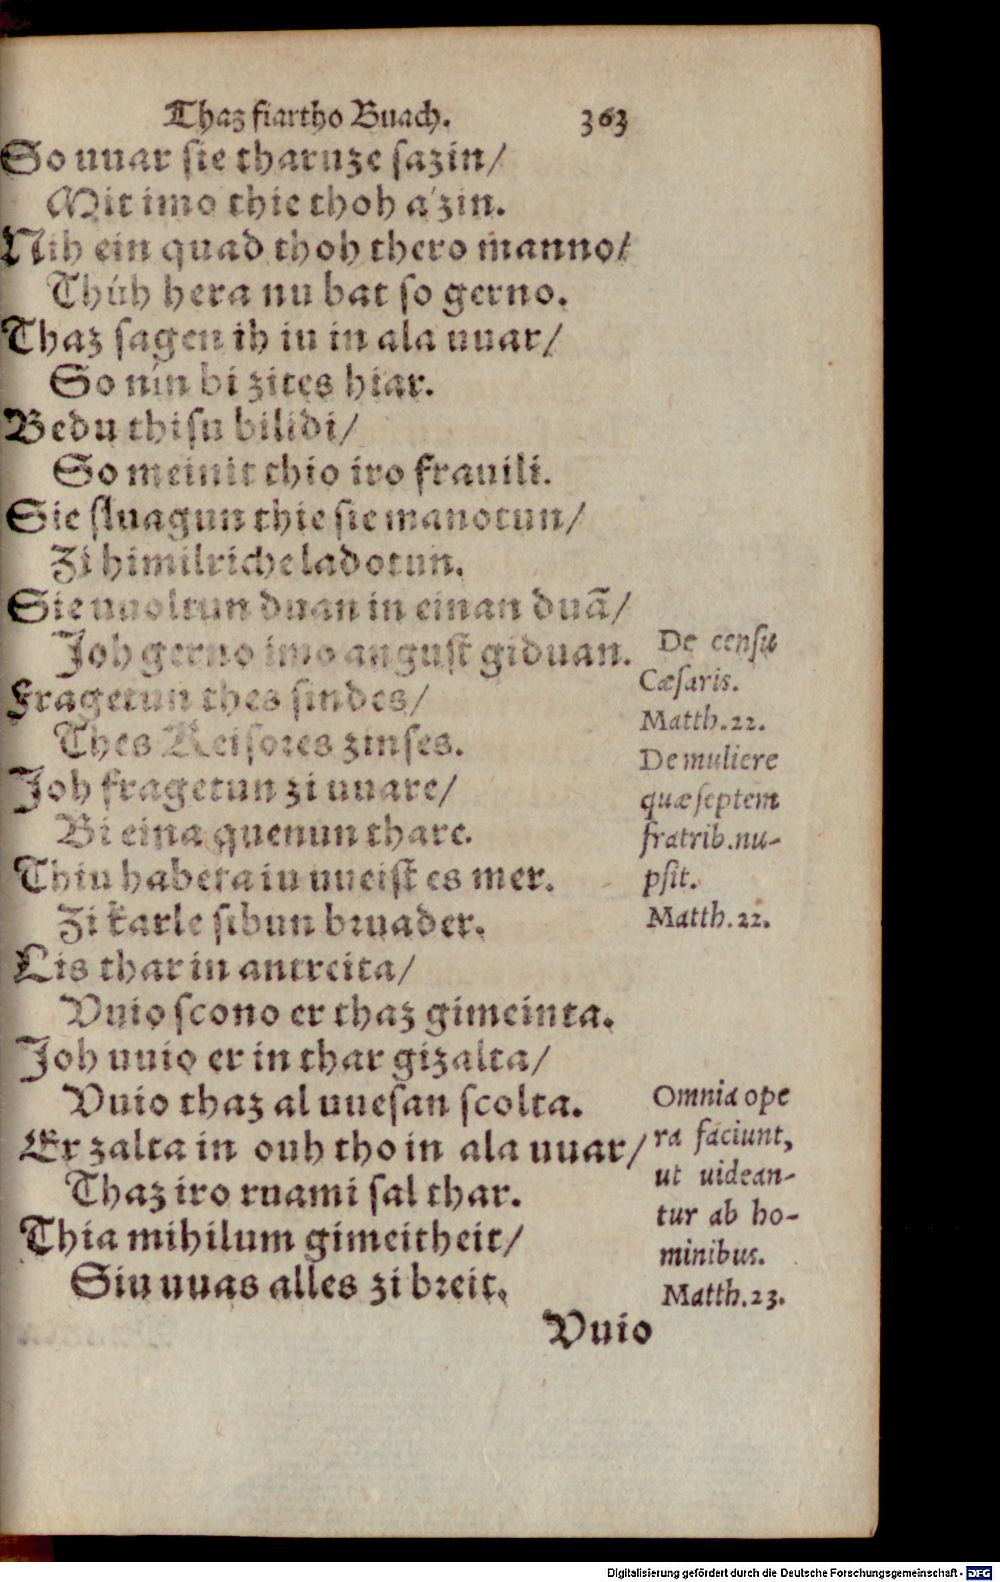 Thaz fiartho Buach. 363
So uuar sie tharuze sazin/
Mit imo thie thoh a'zin.
Nih ein quad thoh thero manno/
Thúh hera nu bat so gerno.
Thaz sagen ih iu in ala uuar/
So nín bi zites hiar.
Bedu thisu bilidi/
So meinit thio iro frauili.
Sie sluagun thie sie manotun/
Zi himilriche ladotun.
Sie uuoltun duan in einan duã/
Joh gerno imo angust giduan.
Fragetun thes sindes/
Thes Keisores zinses.
Joh fragetun zi uuare/
Bi eina quenun thare.
Thiu habeta iu uueist es mer.
Zi karle sibun bruader.
Lis thar in antreita/
Vuio scono er thaz gimeinta.
Joh uuio er in thar gizalta/
Vuio thaz al uuesan scolta.
Er zalta in ouh tho in ala uuar/
Thaz iro ruami sal thar.
Thia mihilum gimeitheit/
Siu uuas alles zi breit.
Vuio
De censu
Cæsaris.
Matth. 22.
De muliere
quæ septem
fratrib. nu-
psit.
Matth. 22.
Omnia ope
ra faciunt,
ut uidean-
tur ab ho-
minibus.
Matth. 23.
Digitalisierung gefördert durch die Deutsche Forschungsgemeinschaft - DFG